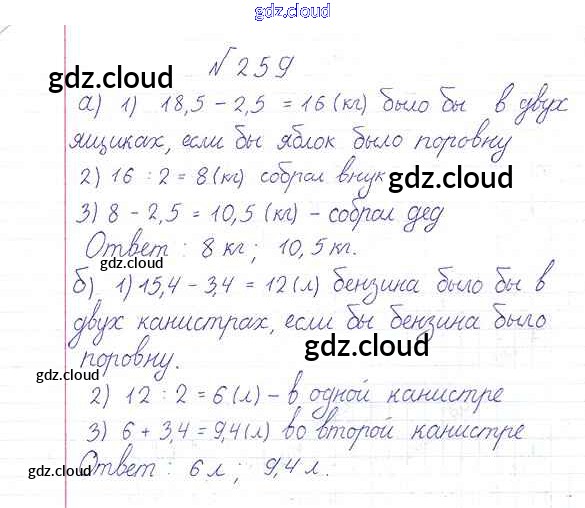 gdz.cloud
№259
gdz.cloud
а) 1) 18,5 - 2,5 = 16 (кг) было бы в двух
ящиках, если бы яблок было поровну
2) 16 : 2 = 8 (кг) собрал внук
gdz.cloud
3) 8 - 2,5 = 10,5 (кг) - собрал дед
Ответ : 8 кг ; 10,5 кг.
gdz.cloud
б) 1) 15,4 - 3,4 = 12 (л) бензина было бы в
двух канистрах, если бы бензина было
gdz.cloud
поровну.
gdz.cloud
2) 12 : 2 = 6 (л) - в одной канистре
3) 6 + 3,4 = 9,4 (л) во второй канистре
Ответ : 6 л ; 9,4 л.
gdz.cloud
gdz.cloud